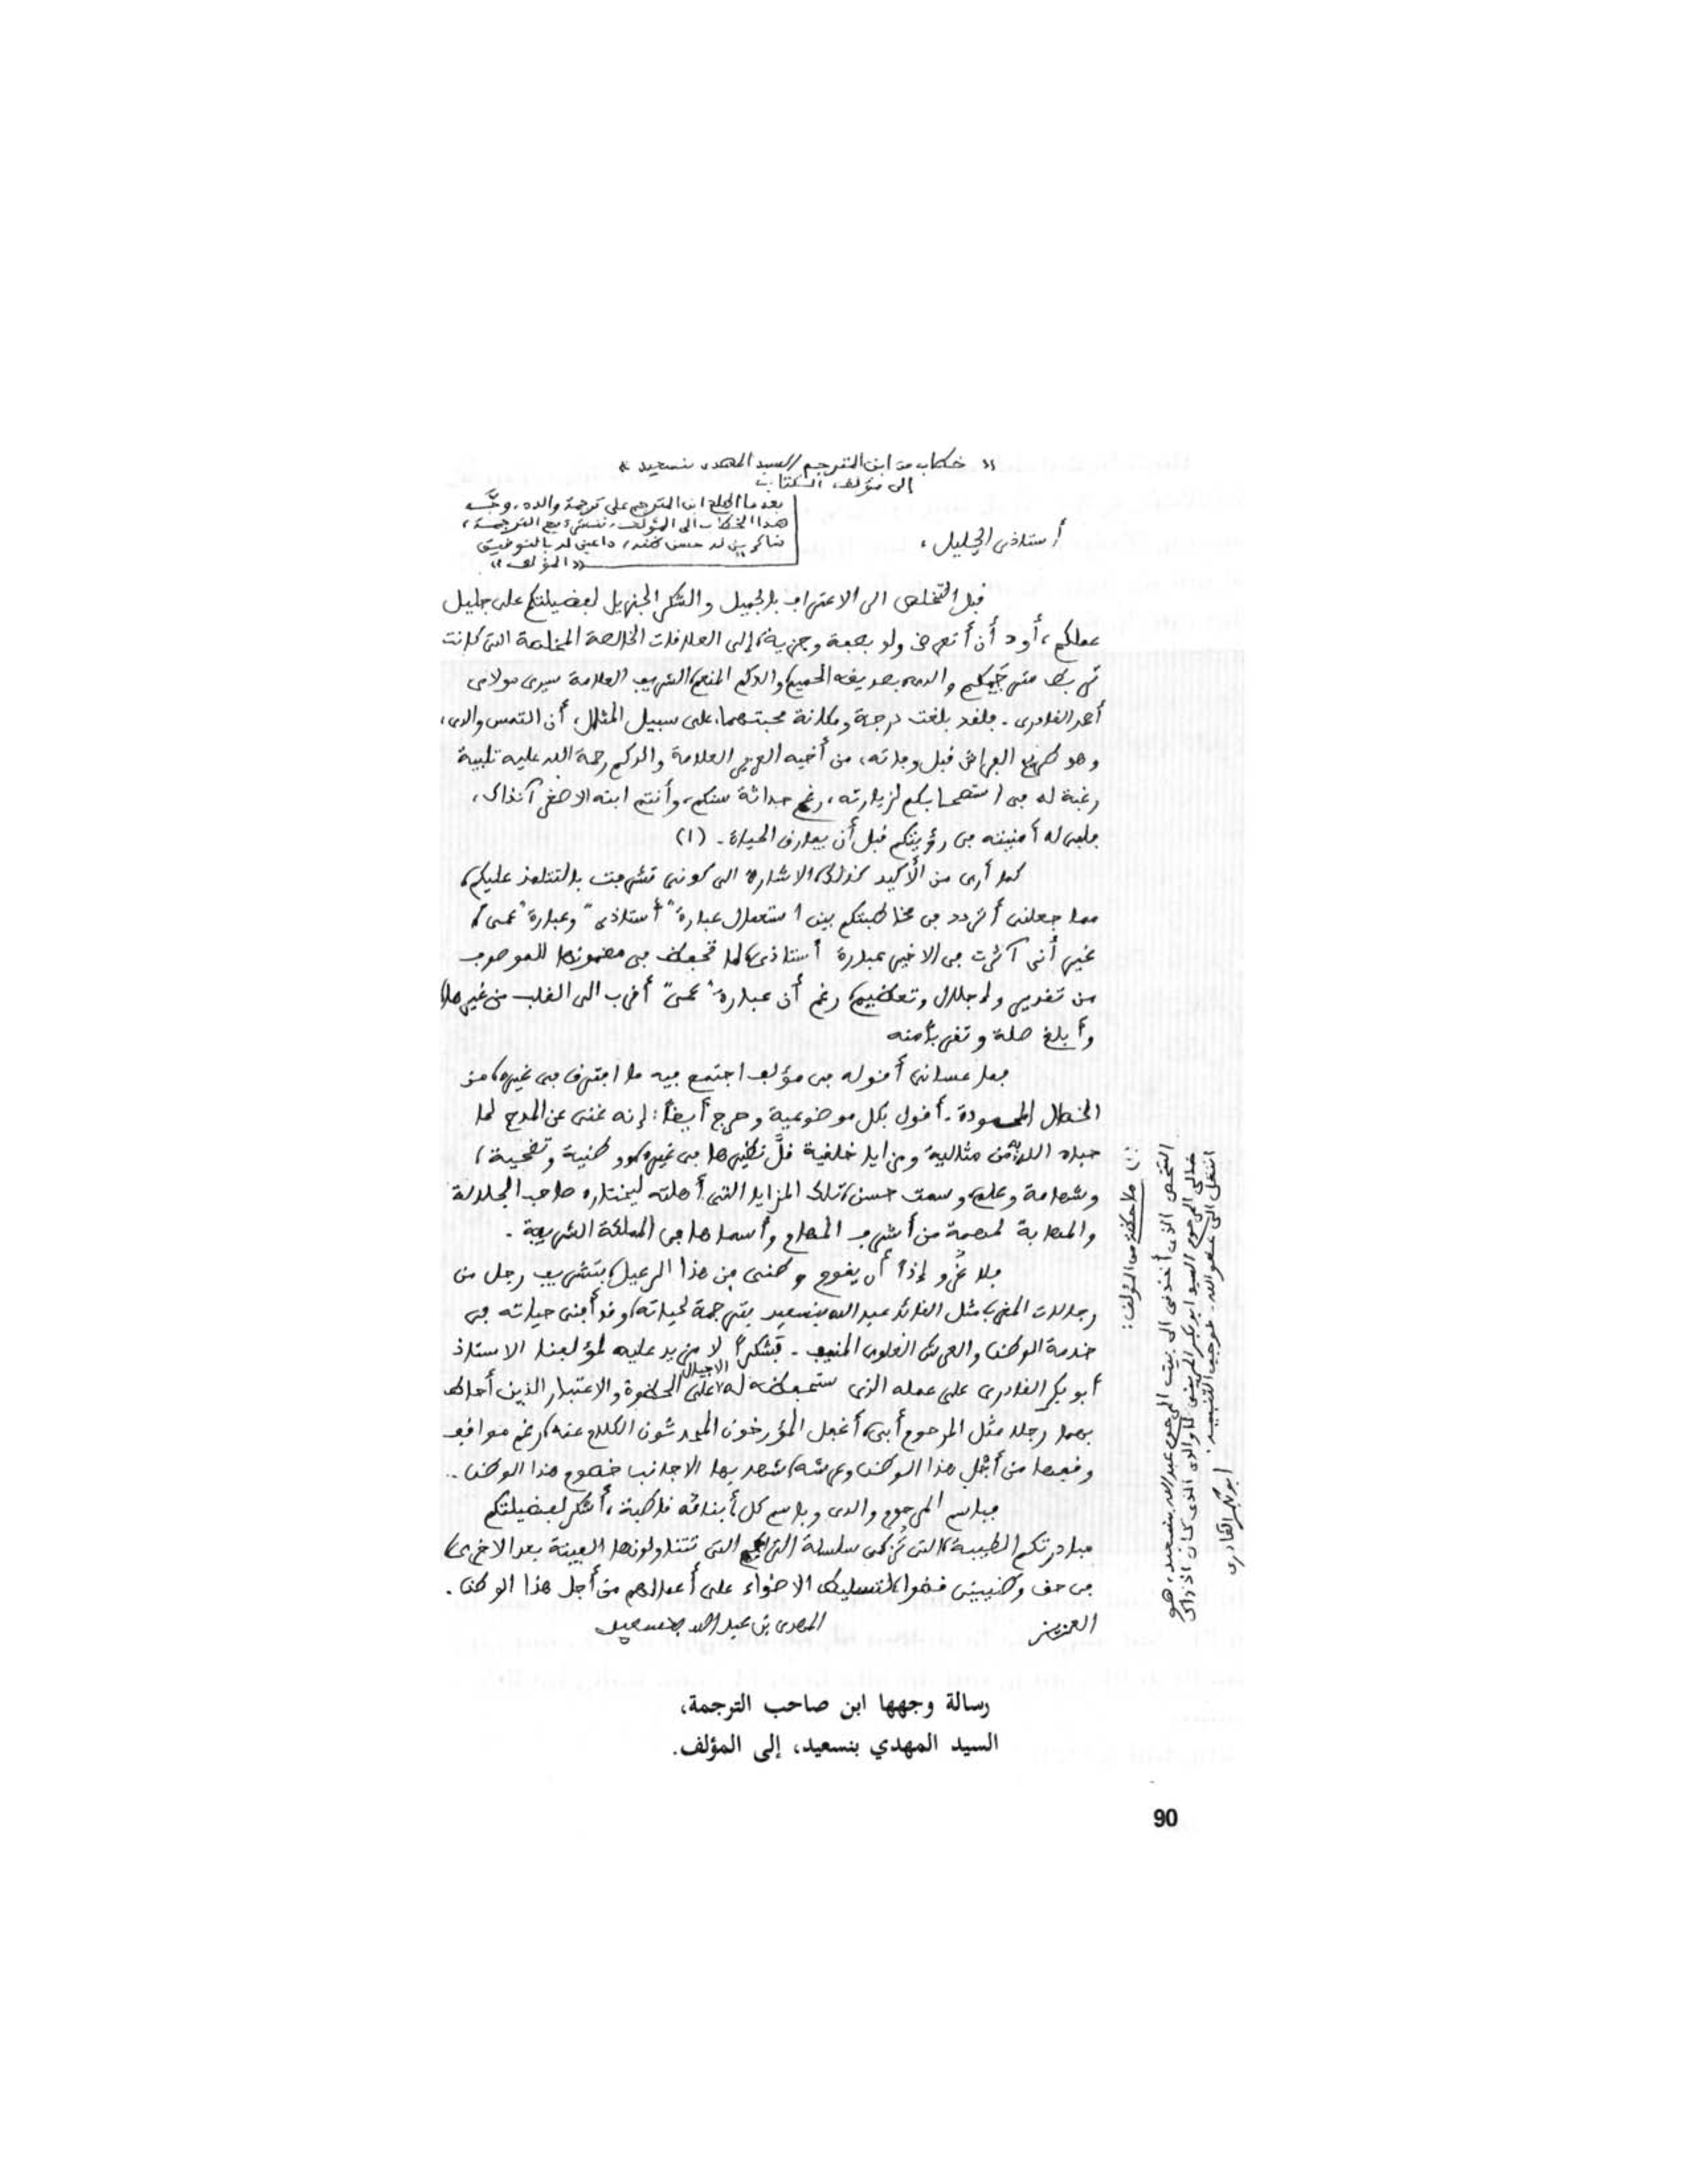 « خطاب من ابن المترجم السيد المهدي بنسعيد »
إلى مؤلف الكتاب
بعد ما اطلع ابن المترجم على ترجمة والده، وجّه
هذا الخطاب إلى المؤلف، ننشره مع الترجمة،
شاكرين له حسن ظنه، داعين له بالتوفيق
«المؤلف»
أستاذي الجليل،
قبل التخلص الى الاعتراف بالجميل والشكر الجزيل لفضيلتكم على جليل
عملكم، أود أن أتعرض ولو بصفة وجيزة، إلى العلاقات الخالصة المخلصة التي كانت
تربط مترجمكم والدي بصديقه الحميم والدكم المنعم الشريف العلامة سيدي مولاي
أحمد القادري. فلقد بلغت درجة ومكانة محبتهما، على سبيل المثال، أن التمس والدي،
وهو طريح الفراش قبل وفاته، من أخيه العزيز العلامة والدكم رحمة الله عليه تلبية
رغبة له في استصحابكم لزيارته، رغم حداثة سنكم، وأنتم ابنه الاصغر آنذاك،
فلبى له أمنيته في رؤيتكم قبل أن يفارق الحياة. (1)
كما أرى من الأكيد كذلك، الاشارة الى كوني تشرفت بالتتلمذ عليكم،
مما جعلني أتردد في مخاطبتكم بين استعمال عبارة "أستاذي" وعبارة "عمي"،
غير أني آثرت في الاخير عبارة أستاذي، لما تحفظ في مضمونها للموصوف
من تقدير وإجلال وتعظيم، رغم أن عبارة "عمي" أقرب الى القلب من غيرها
وأبلغ صلة وتقربا منه
فما عساني أقوله في مؤلف اجتمع فيه ما افترق في غيره، من
الخصال المحمودة. أقول بكل موضوعية وحرج أيضاً: إنه غني عن المدح لما
حباه الله من مثالية ومزايا خلقية قلّ نظيرها في غيره، ووطنية وتضحية،
وشهامة وعلم، وسمت حسن، تلك المزايا التي أهلته ليختاره صاحب الجلالة
والمهابة لمهمة من أشرف المهام وأسماها في المملكة الشريفة.
فلا غرو إذاً أن يقوم وطني من هذا الرعيل، بتشريف رجل من
رجالات المغرب مثل القائد عبد الله بنسعيد بترجمة لحياته، وقد أفنى حياته في
خدمة الوطن والعرش العلوي المنيف. فشكراً لا مزيد عليه لمؤلفنا الاستاذ
أبو بكر القادري على عمله الذي ستحفظه له الاجيال على الحظوة والاعتبار الذين أحاط
بهما رجلا مثل المرحوم أبي، أغفل المؤرخون المحدثون الكلام عنه، رغم مواقف
وقفها من أجل هذا الوطن وعرشه، شهد بها الاجانب خصوم هذا الوطن..
فباسم المرحوم والدي وباسم كل أبنائه قاطبة، أشكر لفضيلتكم
مبادرتكم الطيبة، التي تزكي سلسلة التراجم التي تتناولونها الفينة بعد الاخرى،
في حق وطنيين قضوا، لتسليط الاضواء على أعمالهم من أجل هذا الوطن.
العزيز
المهدي بن عبد الله بنسعيد
(1) ملاحظة من المؤلف:
الشخص الذي أخذني الى بيت المرحوم عبد الله بنسعيد، هو
خالي المرحوم السيد أبو بكر المريني، أما والدي الذي كان آنذاك
انتقل الى عفو الله. فوجب التنبيه.
أبو بكر القادري
رسالة وجهها ابن صاحب الترجمة،
السيد المهدي بنسعيد، إلى المؤلف.
90